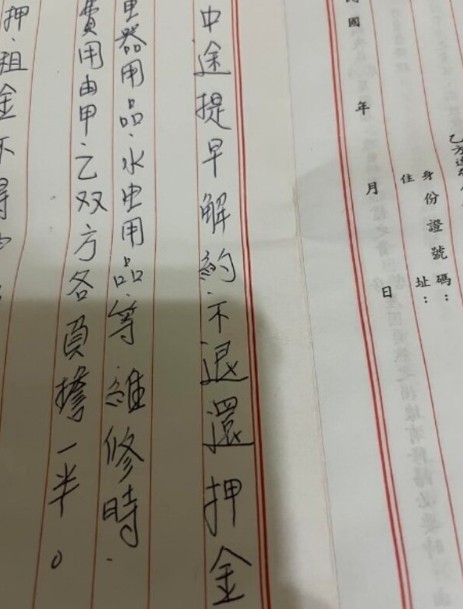 乙方
身份證號碼：
住址：
國 年 月 日
中途提早解約不退還押金
电器用品.水电用品等維修時.
費用由甲乙双方各負擔一半。
押.租金不得